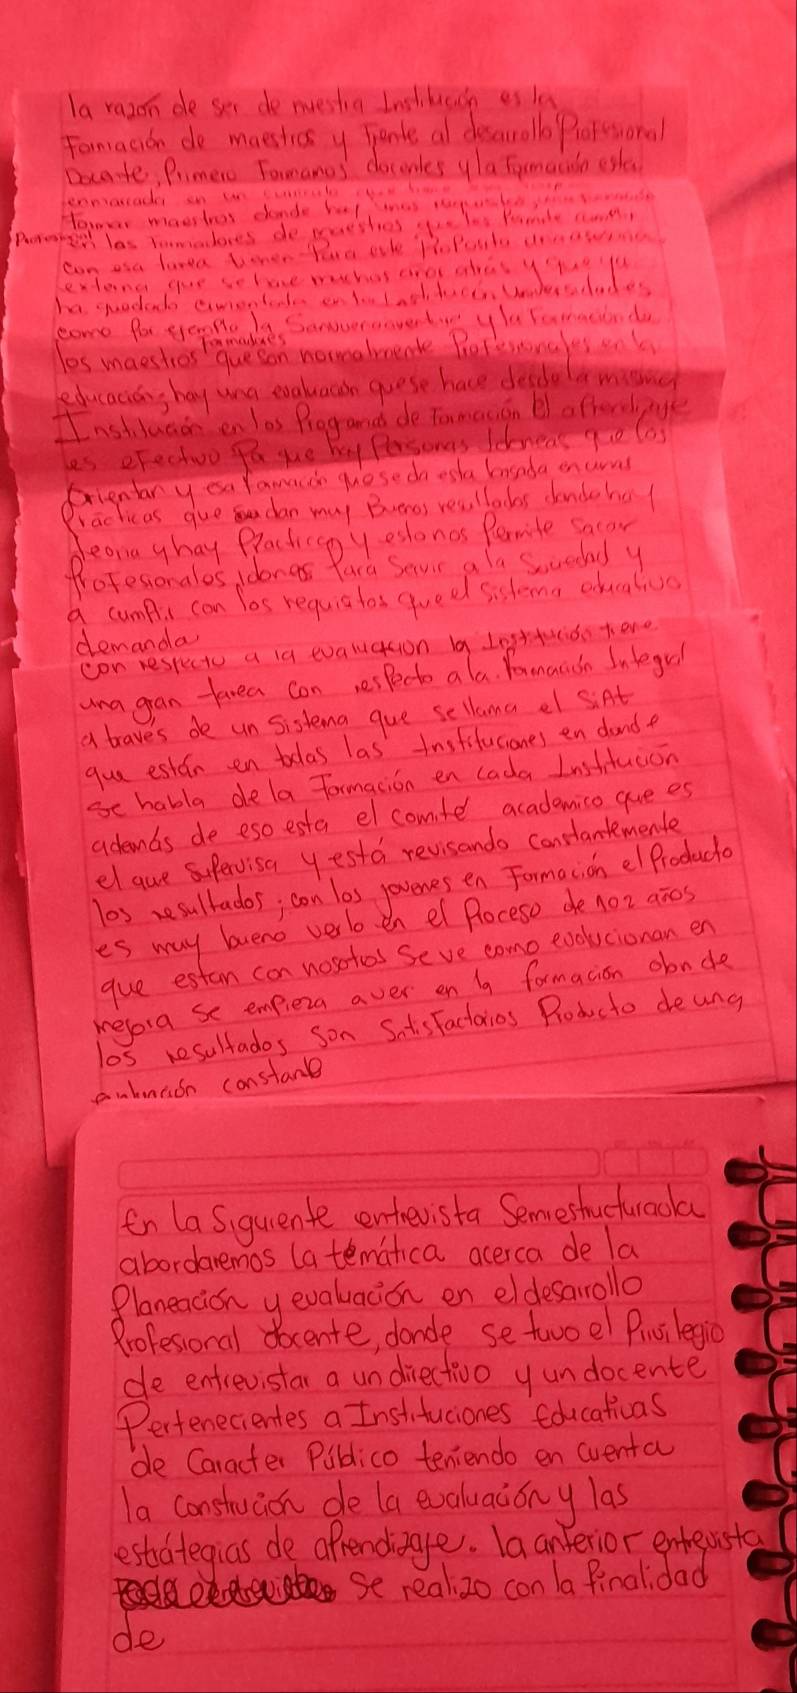 la razón de ser de nuestra Institución es la
Formación de maestros y Frente al desarrollo Profesional
Docente, Primero Formamos docentes y la Formación esta
enmarcada en un
formar maestros donde hay unos requisitos
en las Formadores de maestros que les Permite cumplir
con esa tarea tienen Para este Proposito una asesoria
externa que se hace muchos años atrás y que ya
ha quedado cimentada en la Institución, Universidades
como Por ejemplo la Sanbuenaventura y la Formación de
formadores
los maestros que son normalmente Profesionales en la
educación, hay una evaluación que se hace desde la misma
Institución en los Programas de Formación El aprendizaje
es efectivo Pa que hay Personas Idoneas que los
Orientan y esa Formación que se da esta basada en unas
Prácticas que dan muy Buenos resultados donde hay
teoria y hay Practica y estonos Permite sacar
Profesionales, idoneos Para Servir a la Sociedad y
a cumplir con los requistos que el Sistema educativo
demanda
con respecto a la evaluación la Institución tiene
una gran tarea con respecto a la Formación Integral
a través de un Sistema que se llama el SiAt
que están en todas las Instituciones en donde
se habla de la Formación en cada Institución
además de eso esta el comité academico que es
el que Supervisa y está revisando constantemente
los resultados; con los jovenes en Formación el Producto
es muy bueno verlo en el Proceso de 1 o 2 años
que estan con nosotros Se ve como evolucionan en
mejora se empieza a ver en la formacion donde
los resultados Son Satisfactorios Producto de una
constante
En la Siguiente entrevista Semiestructurada
abordaremos la temática acerca de la
Planeación y evaluación en el desarrollo
Profesional docente, donde se tuvo el Privilegio
de entrevistar a un directivo y un docente
Pertenecientes a Instituciones Educativas
de Caracter Público teniendo en cuenta
la construción de la evaluación y las
estrátegias de aprendizaje. la anterior entrevista
se realizo con la finalidad
de